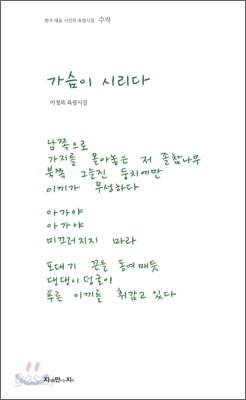 한국 대표 시인의 육필시집 수작
가슴이 시리다
이정록 육필시집
남쪽으로
가지를 몰아놓은 저 졸참나무
북쪽 그늘진 둥치에만
이끼가 무성하다
아가야
아가야
미끄러지지 마라
포대기 끈을 동여매듯
댕댕이덩굴이
푸른 이끼를 휘감고 있다
지식을만드는지식